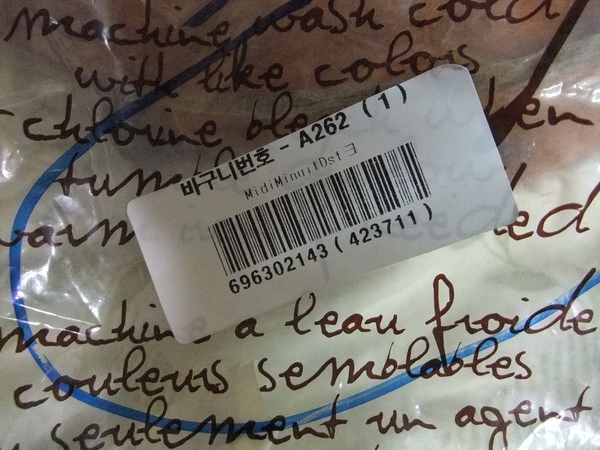 machine wash cold
with like colors
chlorine ble when
tumbl
warm eded
바구니번호 - A262 (1)
MidiMinuitDst크
696302143 ( 423711 )
machine a l'eau froide
couleurs semblables
seulement un agent